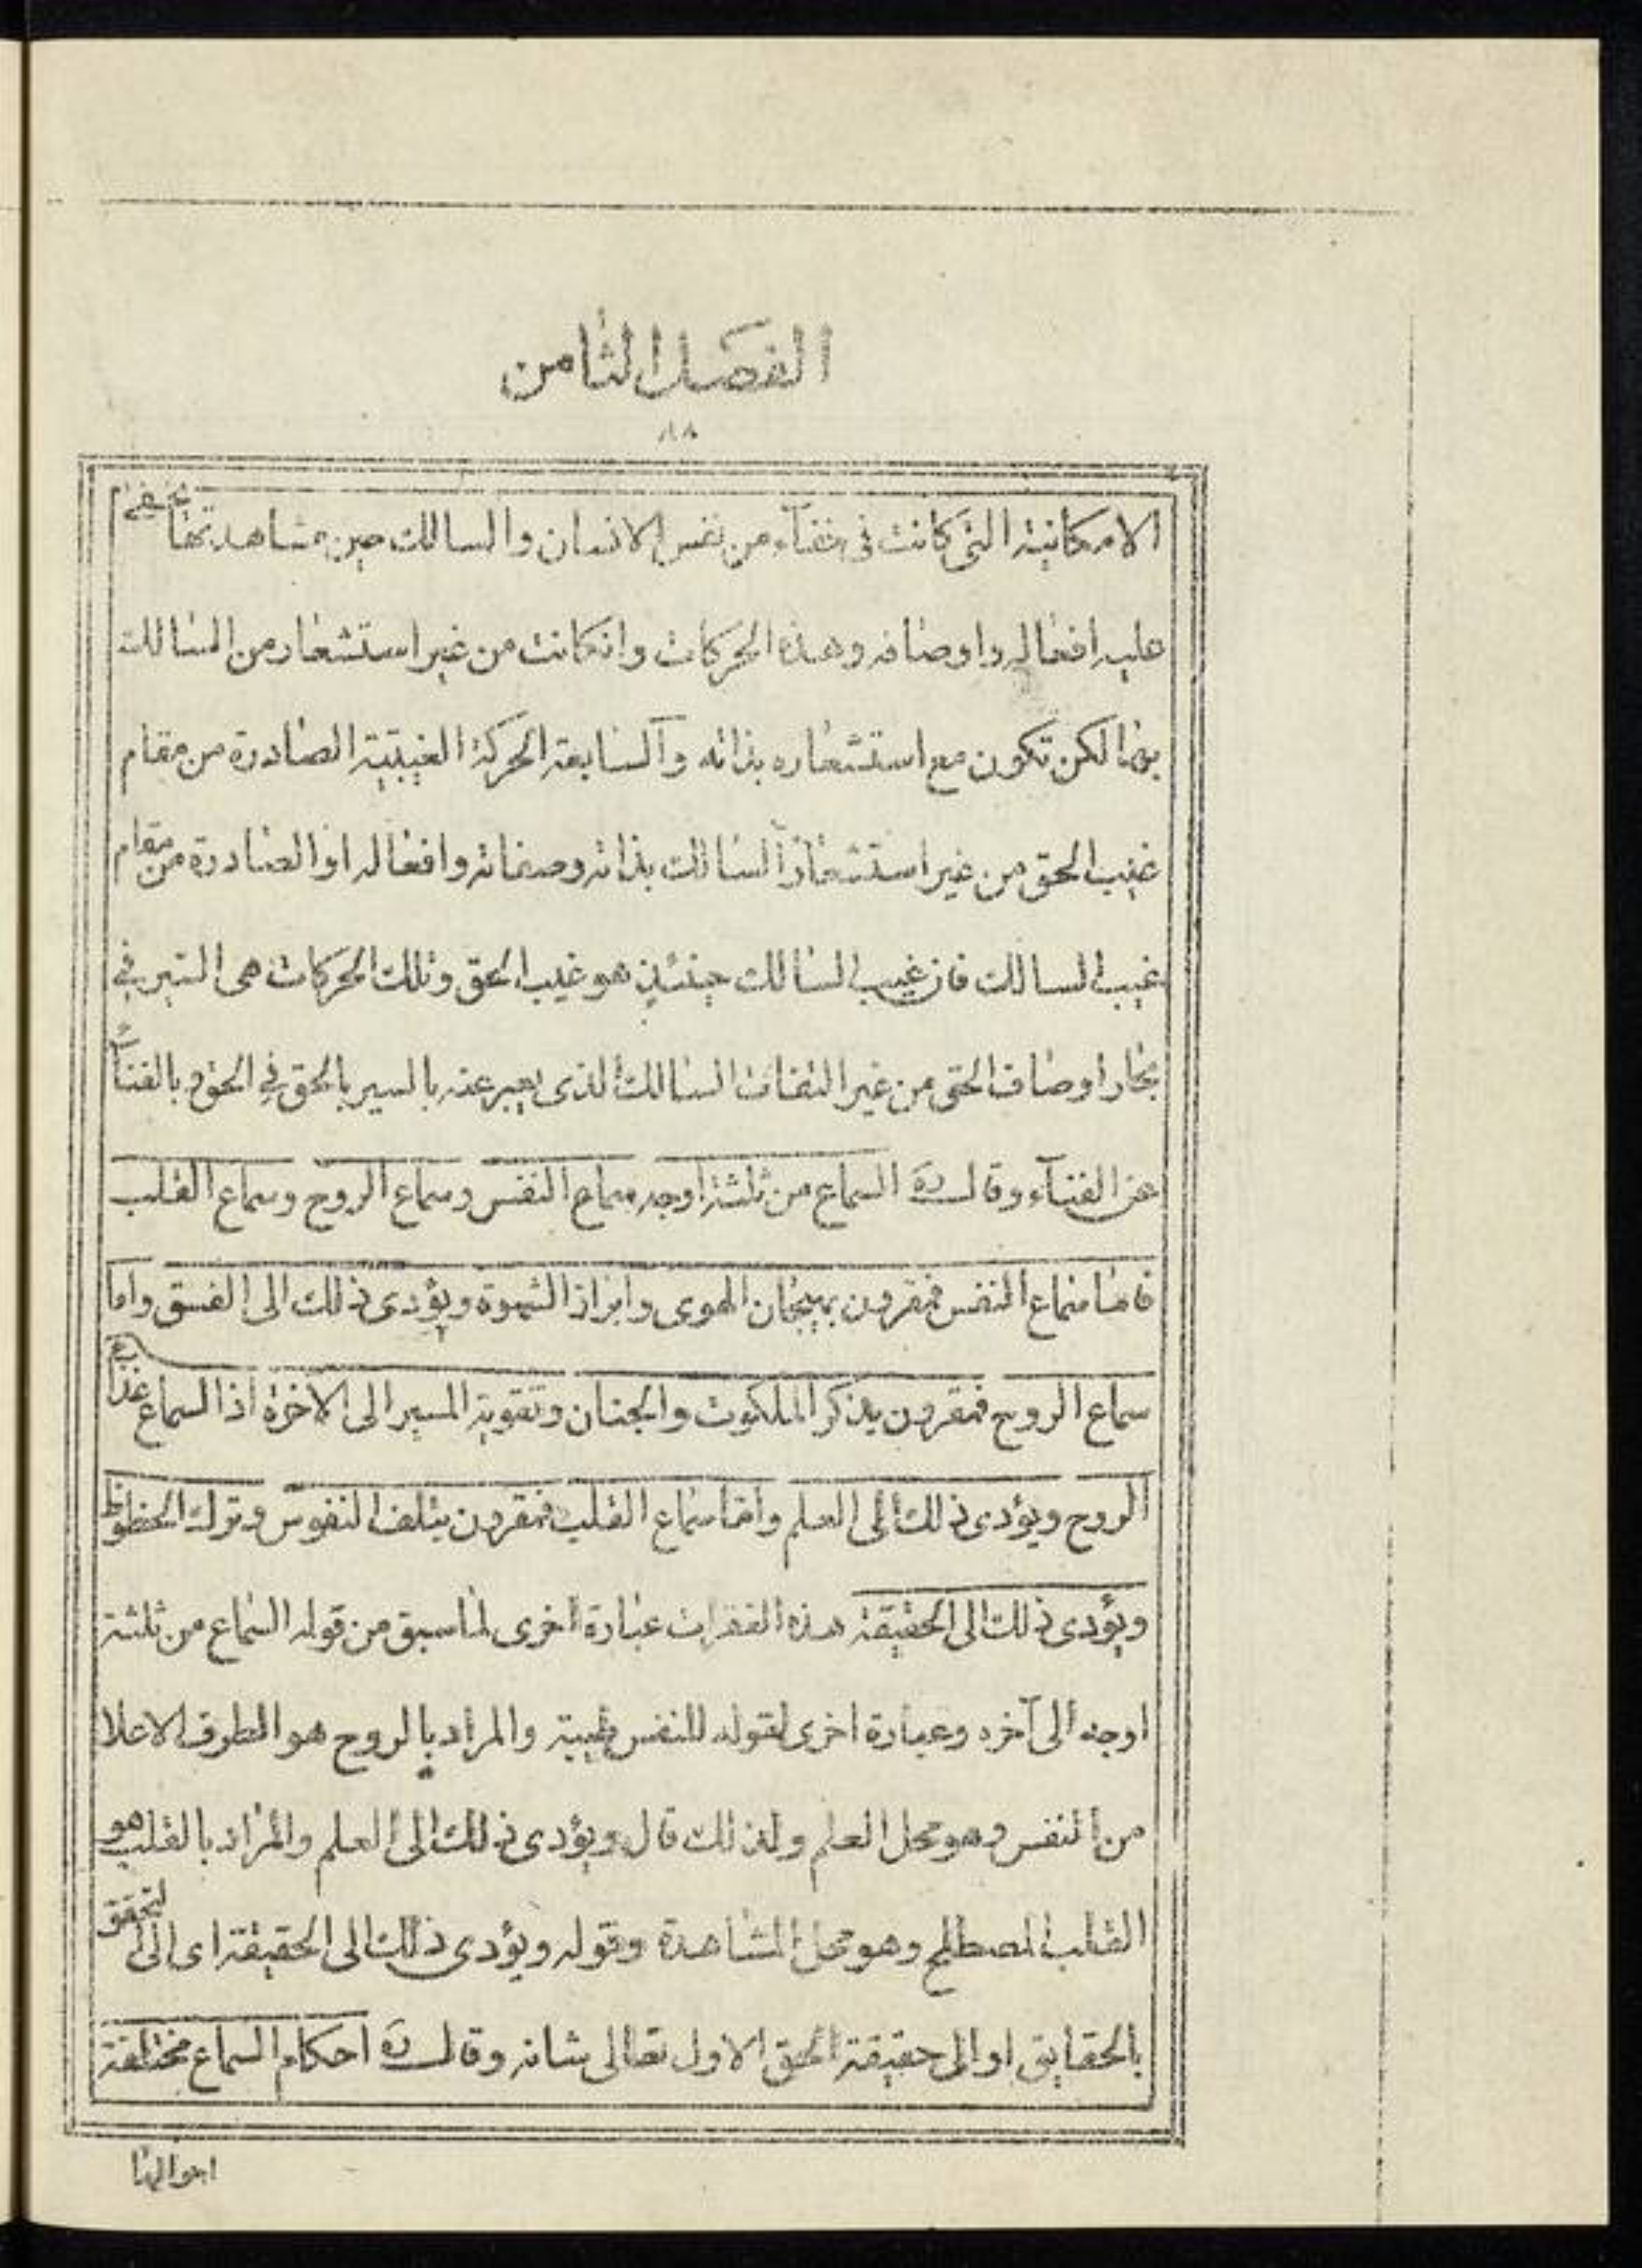 الفصل الثامن
٨٨
الامكانية التى كانت فى خفآء من نفس الانسان والسالك حين مشاهدتها
عليه افعاله واوصافه وهذه الحركات وانكانت من غير استشعار من السالك
بها لكن تكون مع استشعاره بذاته والسابعة الحركة الغيبية الصادرة من مقام
غيب الحق من غير استشعار السالك بذاته وصفاته وافعاله او الصادرة من مقام
غيب السالك فان غيب السالك حينئذ هو غيب الحق وتلك الحركات هى السير فى
بحار اوصاف الحق من غير التفات السالك الذى يعبر عنه بالسير بالحق فى الحق وبالفناء
عن الفنآء وقال ره السماع من ثلثة اوجه سماع النفس وسماع الروح وسماع القلب
فاما سماع النفس فمقرون بهيجان الهوى وابراز الشهوة ويؤدى ذلك الى الفسق واما
سماع الروح فمقرون بذكر الملكوت والجنان وتقوية السير الى الاخرة اذ السماع غذاء
الروح ويؤدى ذلك الى العلم واما سماع القلب فمقرون بتلف النفوس وترك الحظوظ
ويؤدى ذلك الى الحقيقة هذه الفقرات عبارة اخرى لما سبق من قوله السماع من ثلثة
اوجه الى آخره وعبارة اخرى لقوله للنفس والمراد بالروح هو الطرف الاعلا
من النفس وهو محل العلم ولذلك قال ويؤدى ذلك الى العلم والمراد بالقلب هو
القلب المصطلح وهو محل المشاهدة وقوله ويؤدى ذلك الى الحقيقة اى الى التحقق
بالحقايق او الى حقيقة الحق الاول تعالى شانه وقال ره احكام السماع مختلفة
احوالها